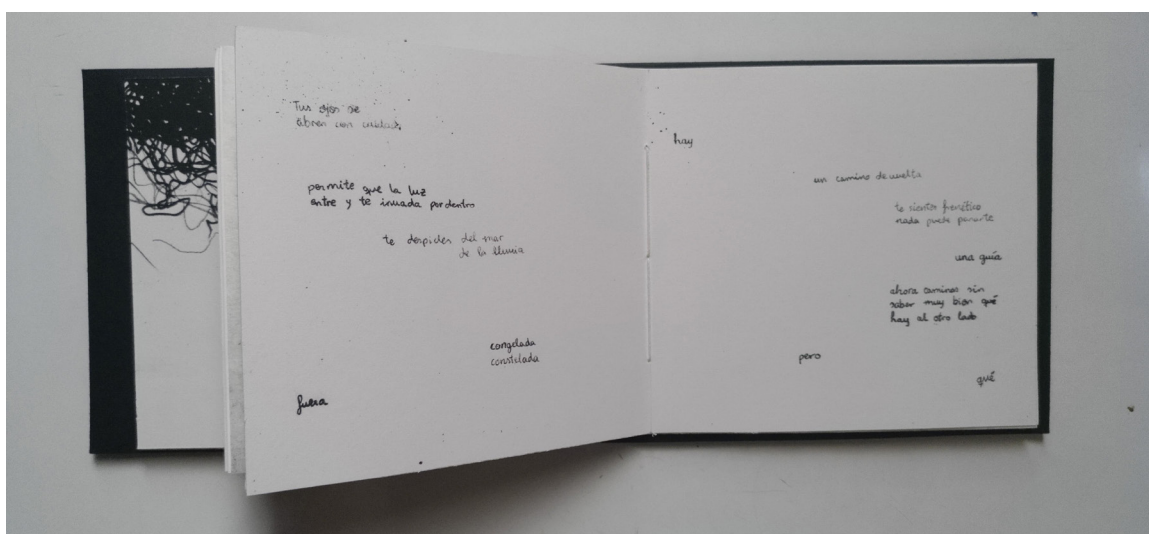 Tus ojos se
abren con cuidado
permite que la luz
entre y te invada por dentro
te despides del mar
de la lluvia
congelada
constelada
fuera
hay
un camino de vuelta
te sientes frenético
nada puede pararte
una guía
ahora caminas sin
saber muy bien qué
hay al otro lado
pero
qué